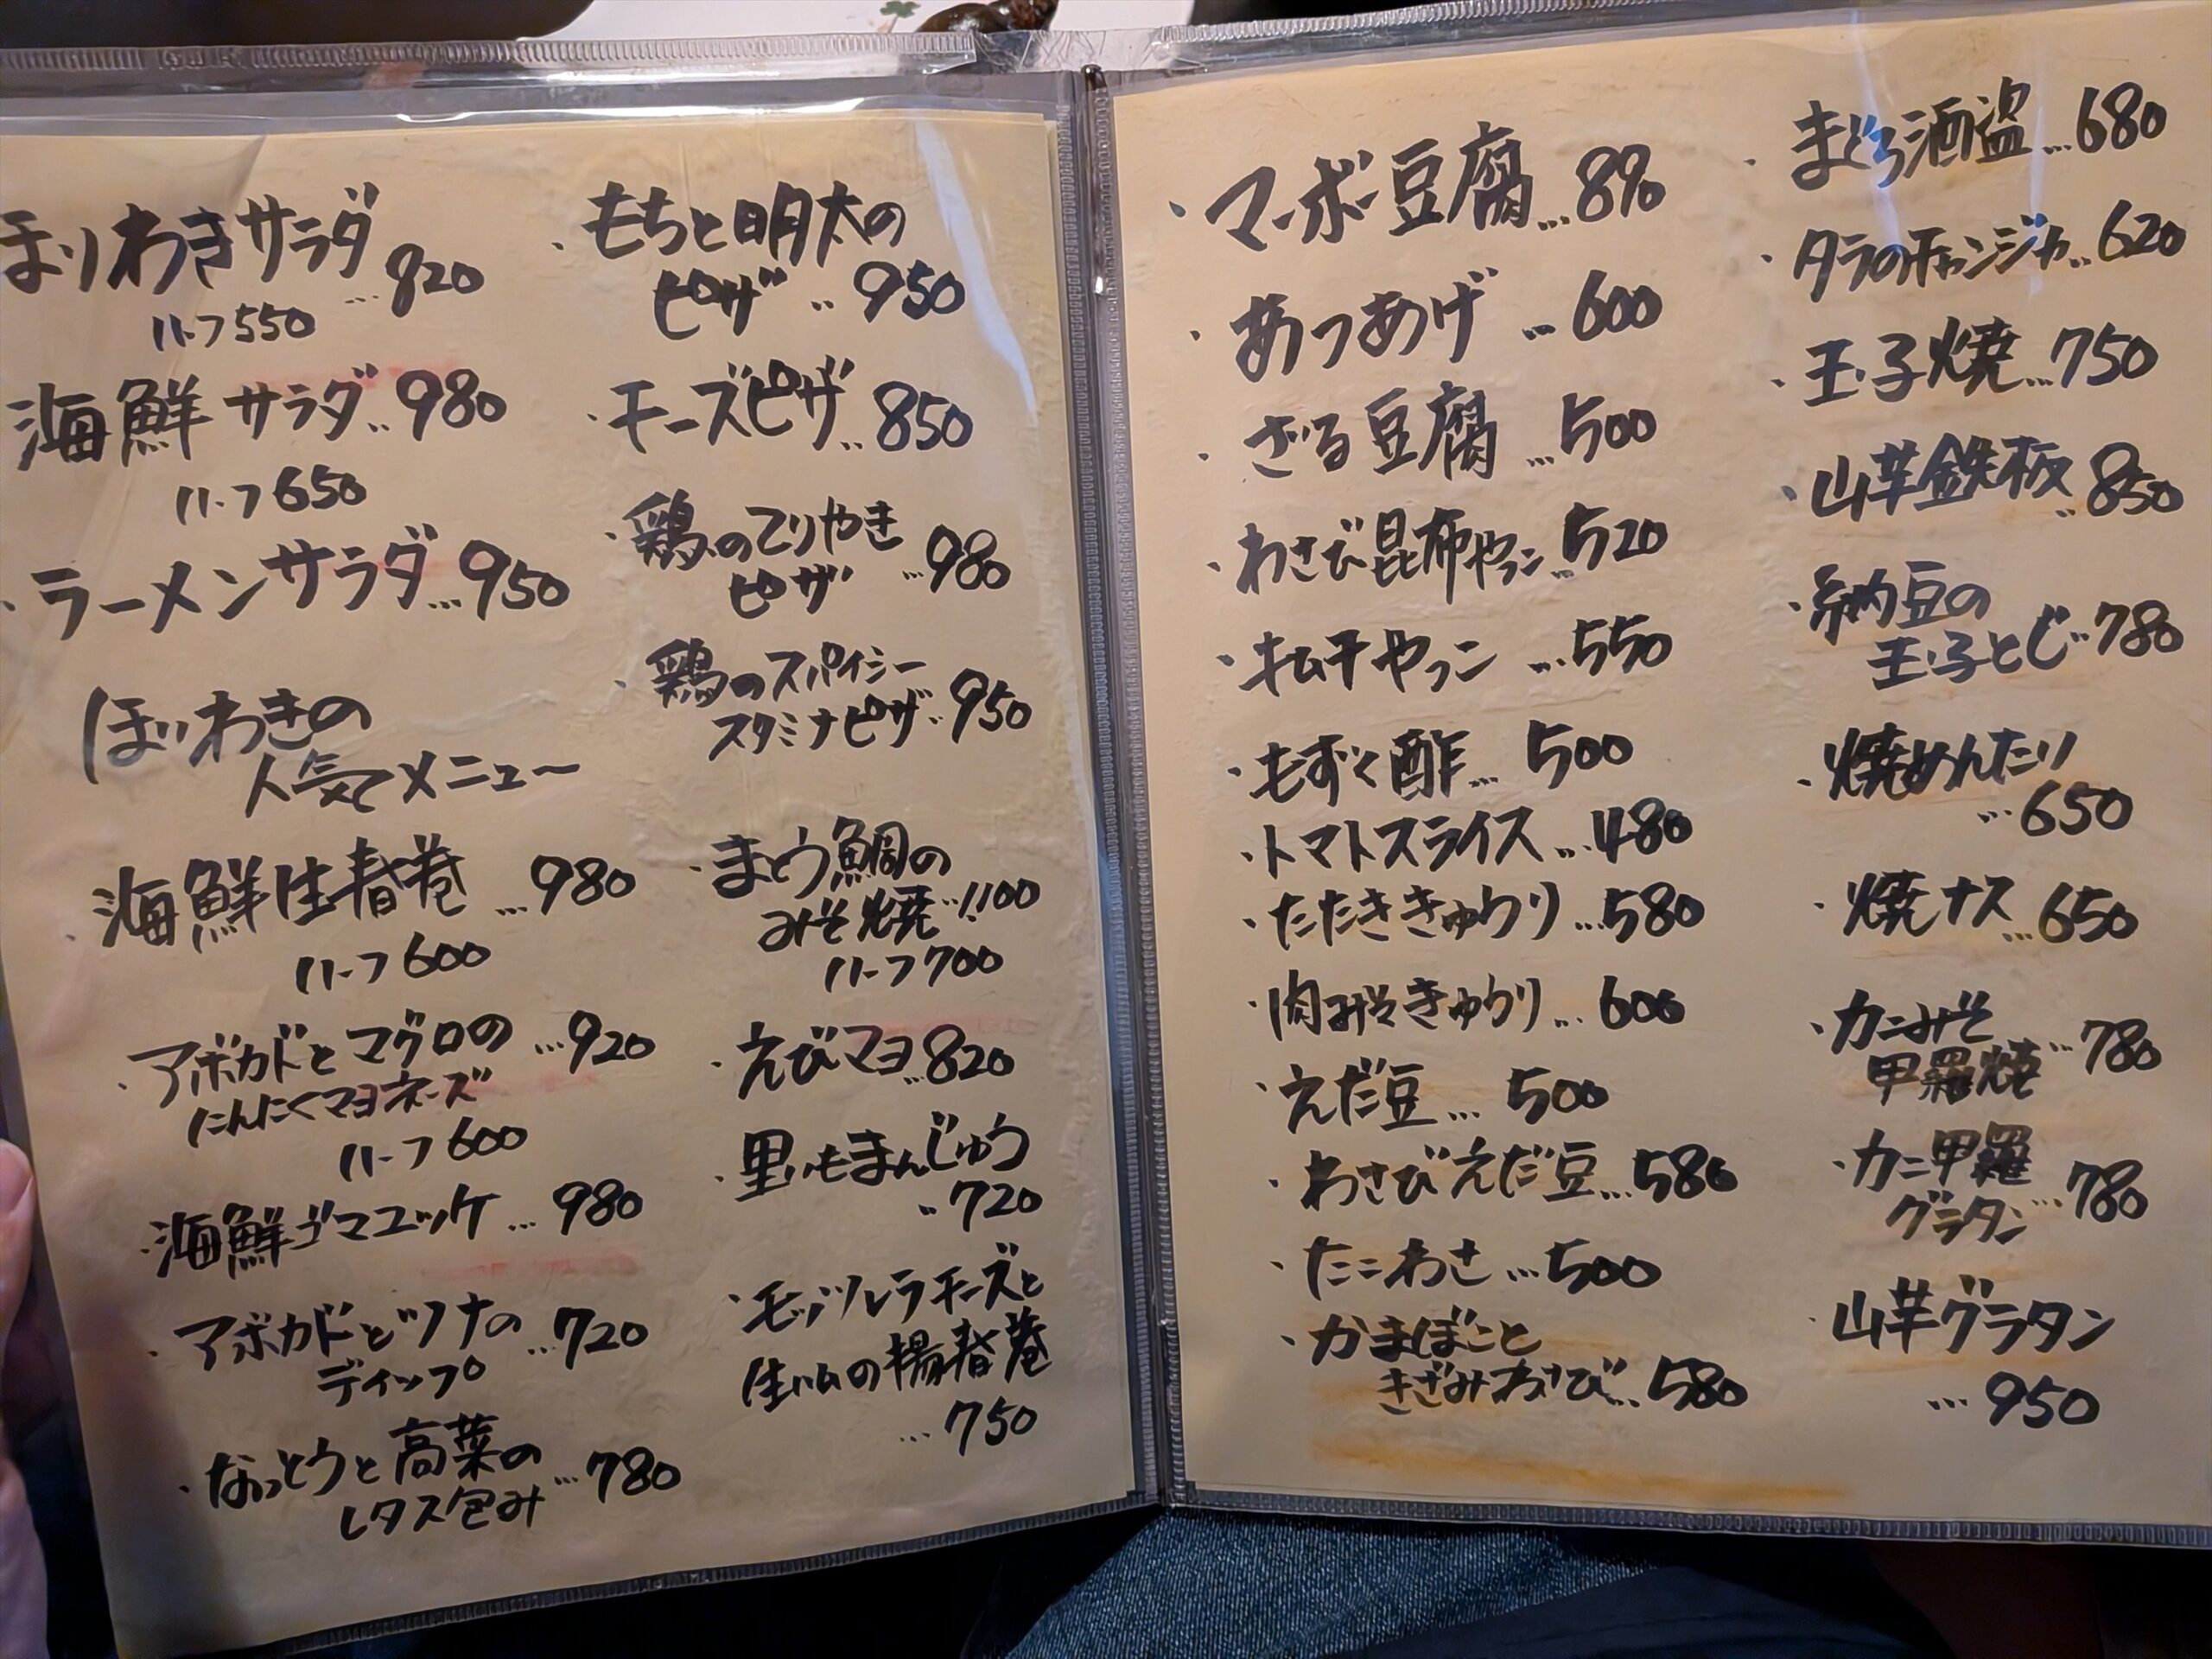 ほりわきサラダ …820
ハーフ550
海鮮サラダ…980
ハーフ650
・ラーメンサラダ…950
ほりわきの
人気メニュー
・海鮮生春巻 …980
ハーフ600
・アボカドとマグロの …920
にんにくマヨネーズ
ハーフ600
・海鮮ゴマユッケ …980
・アボカドとツナの …720
ディップ
・なっとうと高菜の …780
レタス包み
・もちと明太の
ピザ …950
・チーズピザ…850
・鶏のてりやき
ピザ …980
・鶏のスパイシー
スタミナピザ…950
・まとう鯛の
みそ焼…1,100
ハーフ700
・えびマヨ…820
・里いもまんじゅう
…720
・モッツァレラチーズと
生ハムの揚春巻
…750
・マーボー豆腐…890
・あつあげ …600
・ざる豆腐 …500
・わさび昆布やっこ…520
・キムチやっこ …550
・もずく酢… 500
・トマトスライス…480
・たたききゅうり…580
・肉みそきゅうり… 600
・えだ豆… 500
・わさびえだ豆…580
・たこわさ…500
・かまぼこと
きざみわさび…580
・まぐろ酒盗…680
・タラのチャンジャ…620
・玉子焼…750
・山芋鉄板…850
・納豆の
玉子とじ…780
・焼めんたい
…650
・焼ナス…650
・カニみそ
甲羅焼…780
・カニ甲羅
グラタン…780
・山芋グラタン
…950